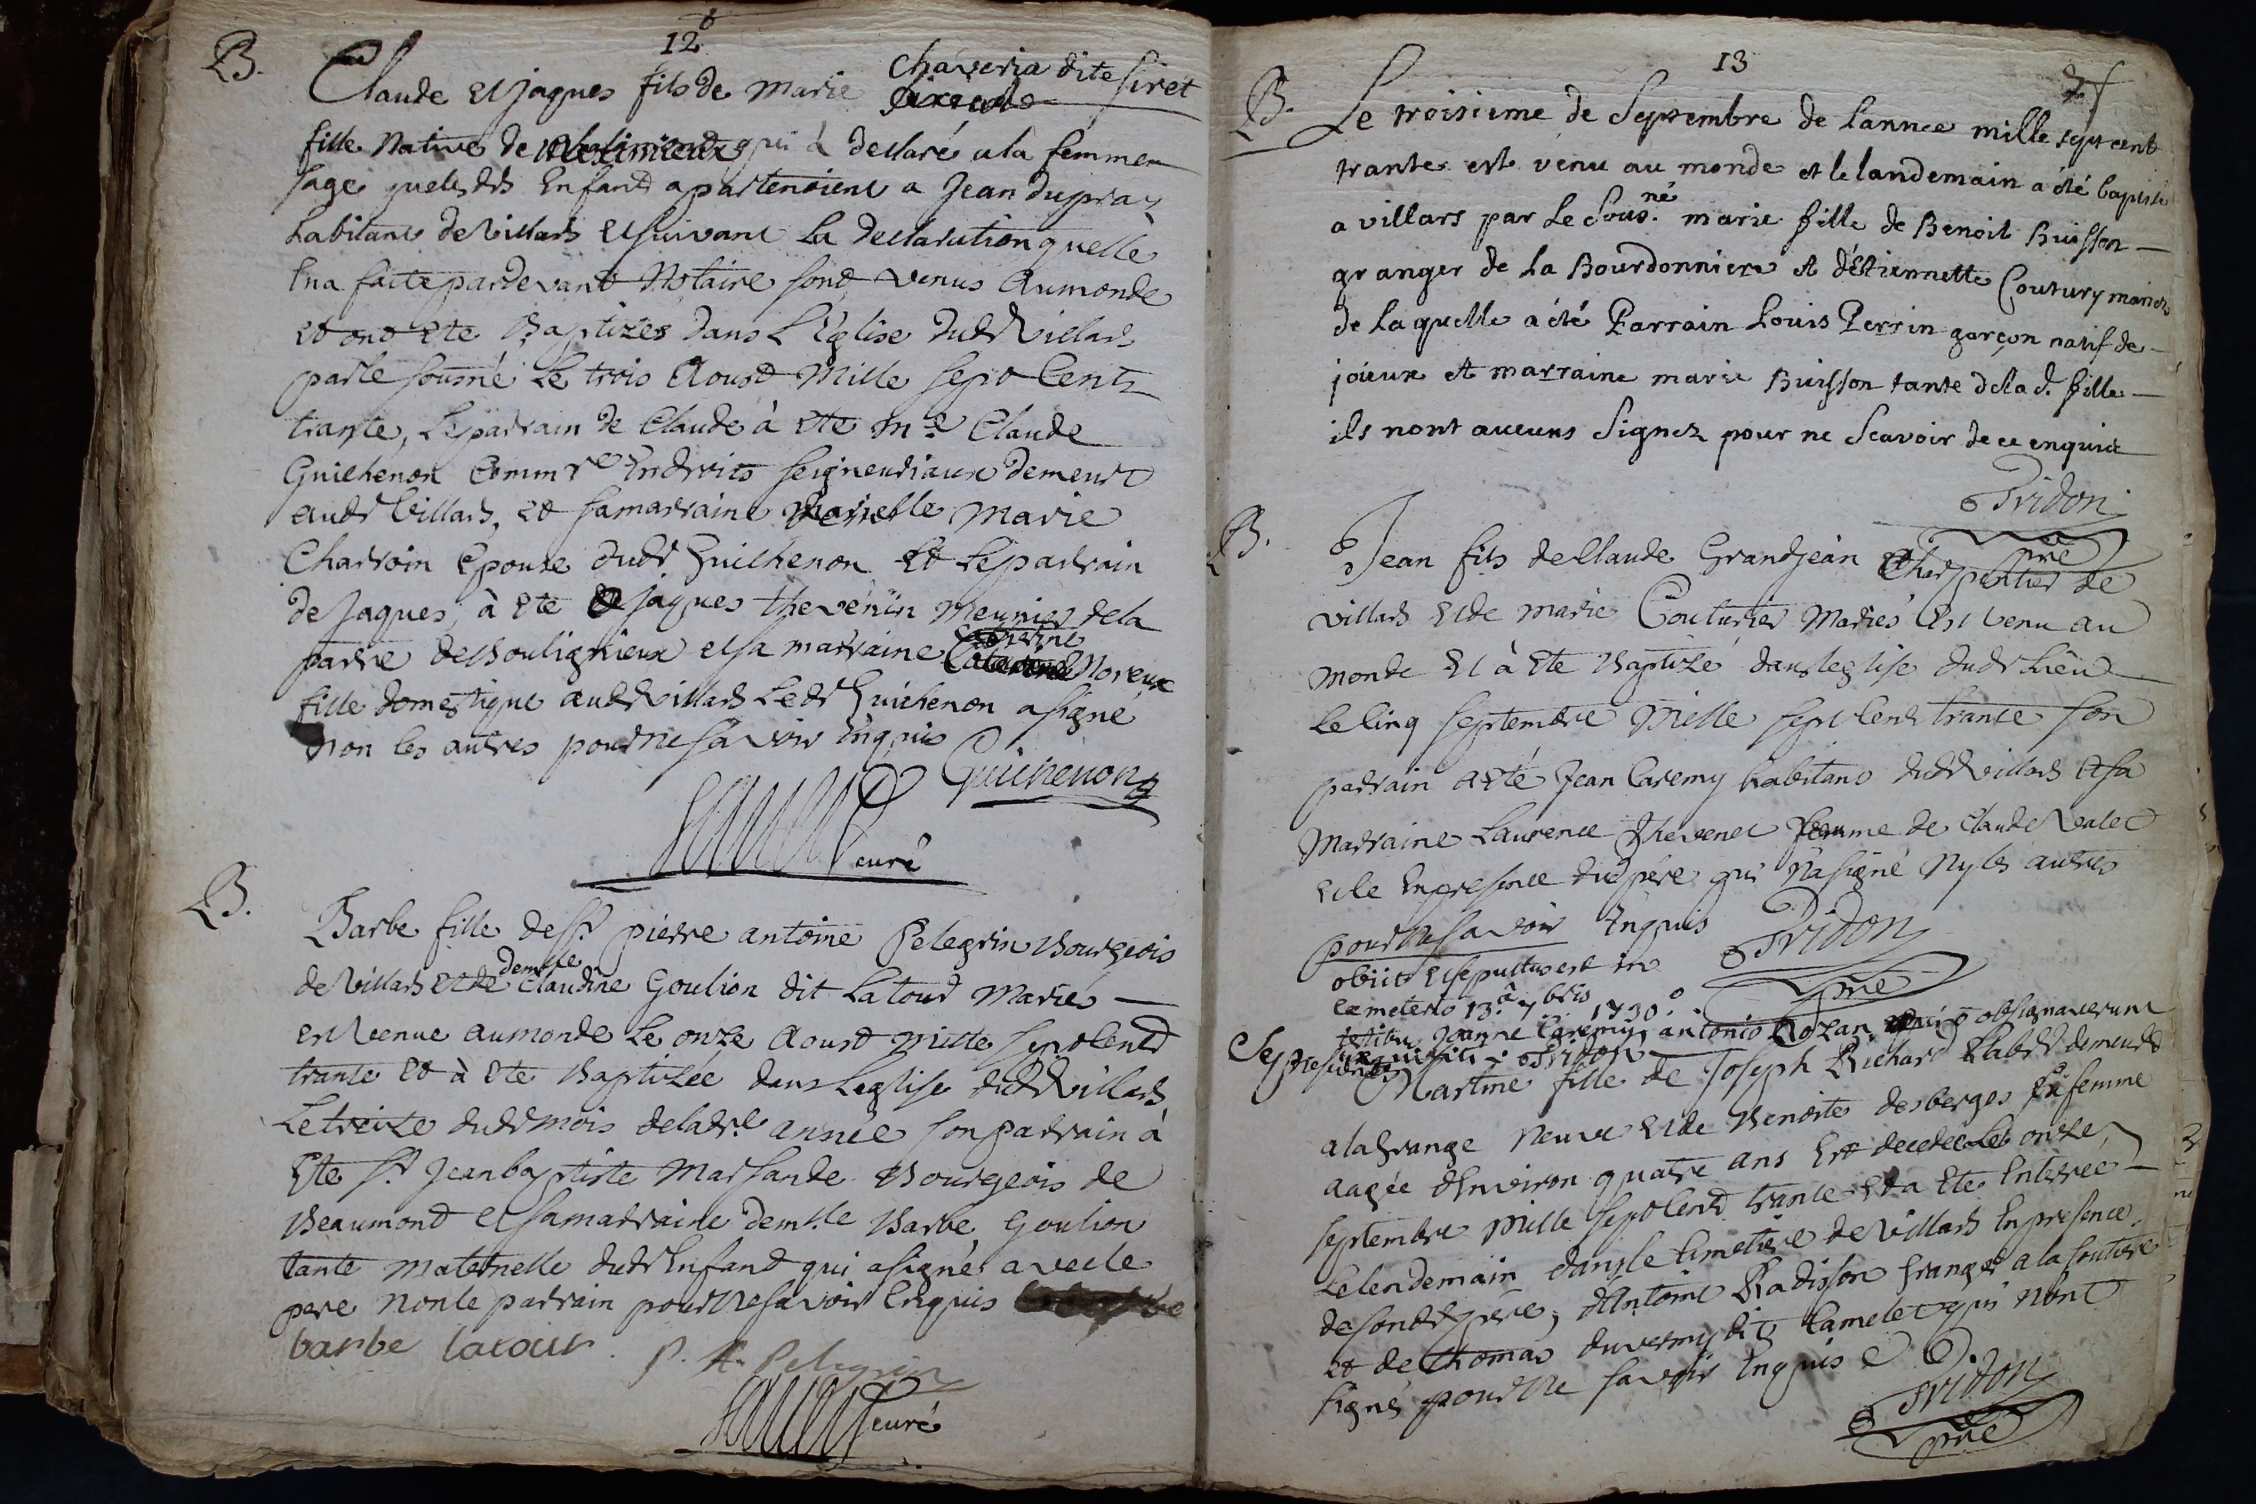 12
B.
Claude et jaques fils de Marie Chaveria dite siret
fille Native de qui à desclaré a la femme
sage quelesdts Enfant apartenoient a Jean dupra
habitant de Villars et suivant la desclaration quelle
Ena faite pardevant Notaire sont venus Aumonde
et ont ete Baptizés dans L'Eglise dudt Villars
parle sousné Le trois Aoust Mille sept Cent
trante, Leparrain de Claude à ete Mre Claude
Guichenon Commre Endroits seigneuriaux demeurt
audt Villars, et samarraine Marie
Charroin Epouse dudt Guichenon Et Leparrain
de Jaques, à ete jaques thevenin Meunier dela
parre deBoulignieux et sa marraine Caterine Moreux
fille domestique audt Villars Ledt Guichenon asigné
Non les autres pourNe savoir Enquis
Guichenon
curé
B.
Barbe fille de Sr. pierre antoine Pelegrin Bourgeois
de Villars et de demlle Claudine Goulion dit Latour Mariés
est venue aumonde Le onze Aoust Mille sept Cent
trante et à ete Baptizée dans Leglise dudt Villars
Le treize dudt mois deladte année son parrain à
Ete Sr. Jeanbaptiste Marsande Bourgeois de
Beaumont et samarraine demlle Barbe Goulion
tante Maternelle dudt Enfant qui asigné avecle
pere Nonle parrain pourNesavoir Enquis
barbe latour P. A. Pelegrin
curé
13
B.
Le troisieme de Septembre de lannee mille sept cent
trante est venu au monde et le landemain a été baptisé
a villars par le Sousné. marie fille de Benoit Buisson
granger de la Bourdonniere et d'Etiennette Coutury mariez
de laquelle a été Parrain Louis Perrin garçon natif de
joieux et marraine marie Buisson tante dela d. fille
ils nont aucuns Signez pour ne Scavoir de ce enquis
Tridon
pre
B.
Jean fils de Claude Grandjean Charpentier de
villars et de Marie Couturier Mariés Est venu au
monde Et à Ete Baptizé dans leglise dudt Lieu
Le Cinq septembre Mille sept Cent trante son
parrain a Eté Jean Caremy habitant dudt Villars et sa
Marraine Laurence Thevenet femme de Claude Valet
et le Enpresence dudt pére qui Nasigné Ny les autres
pourNesavoir Enquis
Tridon
pre
obiit et sepultus est in
cemeterio 13a 7bris 1730o
testibus Joanne Caremy, antonio Rozan qui ō obsignaverunt
requisiti. Tridon
Sep
Martine fille de Joseph Richard Labr demeurt
a la Grange Neuve et de Benoite desberges sa femme
aagée dEnviron quatre ans Est decedée Le onze
septembre Mille sept Cent trante et a Ete Enterrée
Le lendemain dansle Cimetiere de Villars Enpresence
de sondt pére, dAntoine Radisson Granger a la Joutiere
et de Thomas duvernay dit Camelet qui Nont
signés pourNe savoir Enquis
Tridon
pre